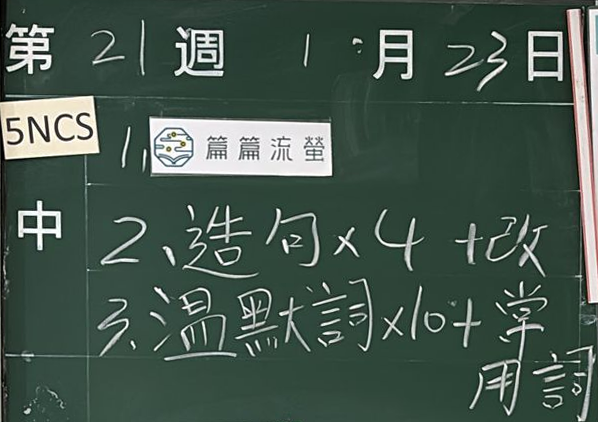 第 21 週 1 月 23 日
5NCS
1, 篇篇流螢
中
2、造句x4 +改
3、温默詞x10+常
用詞